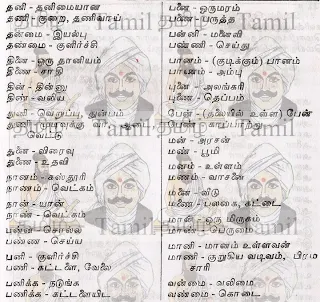 தனி - தனிமையான
தணி - குறை, தணிவாய்
தன்மை - இயல்பு
தண்மை - குளிர்ச்சி
தினை - ஒரு தானியம்
திணை - சாதி
தின் - தின்னு
திண் - வலிய
துனி - வெறுப்பு, துன்பம்
வெட்டு
துனை - விரைவு
துணை - உதவி
நானம் - கஸ்தூரி
நாணம் - வெட்கம்
நான் - யான்
நாண் - வெட்கம்
பன்ன - சொல்ல
பண்ண - செய்ய
பனி - குளிர்ச்சி
பணி - கட்டளை, வேலை
பனிக்க - நடுங்க
பணிக்க - கட்டளையிட
பனை - ஒருமரம்
பணை - பருத்த
பன்னி - மனைவி
பண்ணி - செய்து
பானம் - (குடிக்கும்) பானம்
பாணம் - அம்பு
புனை - அலங்கரி
புணை - தெப்பம்
பேன் - (தலையில் உள்ள) பேன்
பேண் - காப்பாற்று
மன் - அரசன்
மண் - பூமி
மனம் - உள்ளம்
மணம் - வாசனை
மனை - வீடு
மணை - பலகை, கட்டை
மான் - ஒரு மிருகம்
மாண் - பெருமை
மானி - மானம் உள்ளவன்
மாணி - குறுகிய வடிவம், பிரம
சாரி
வன்மை - வலிமை
வண்மை - கொடை